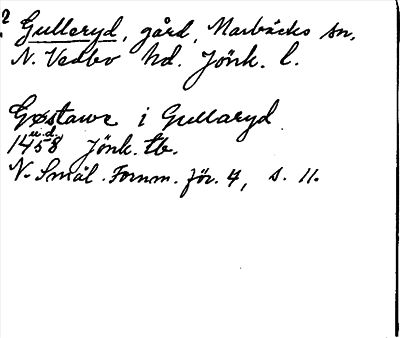 2 Gulleryd, gård, Marbäcks sn,
N. Vedbo hd. Jönk. l.
Gøstawe i Gullaryd
u.d.
1458 Jönk. tb.
N. Smål. Fornm. för. 4, s. 11.